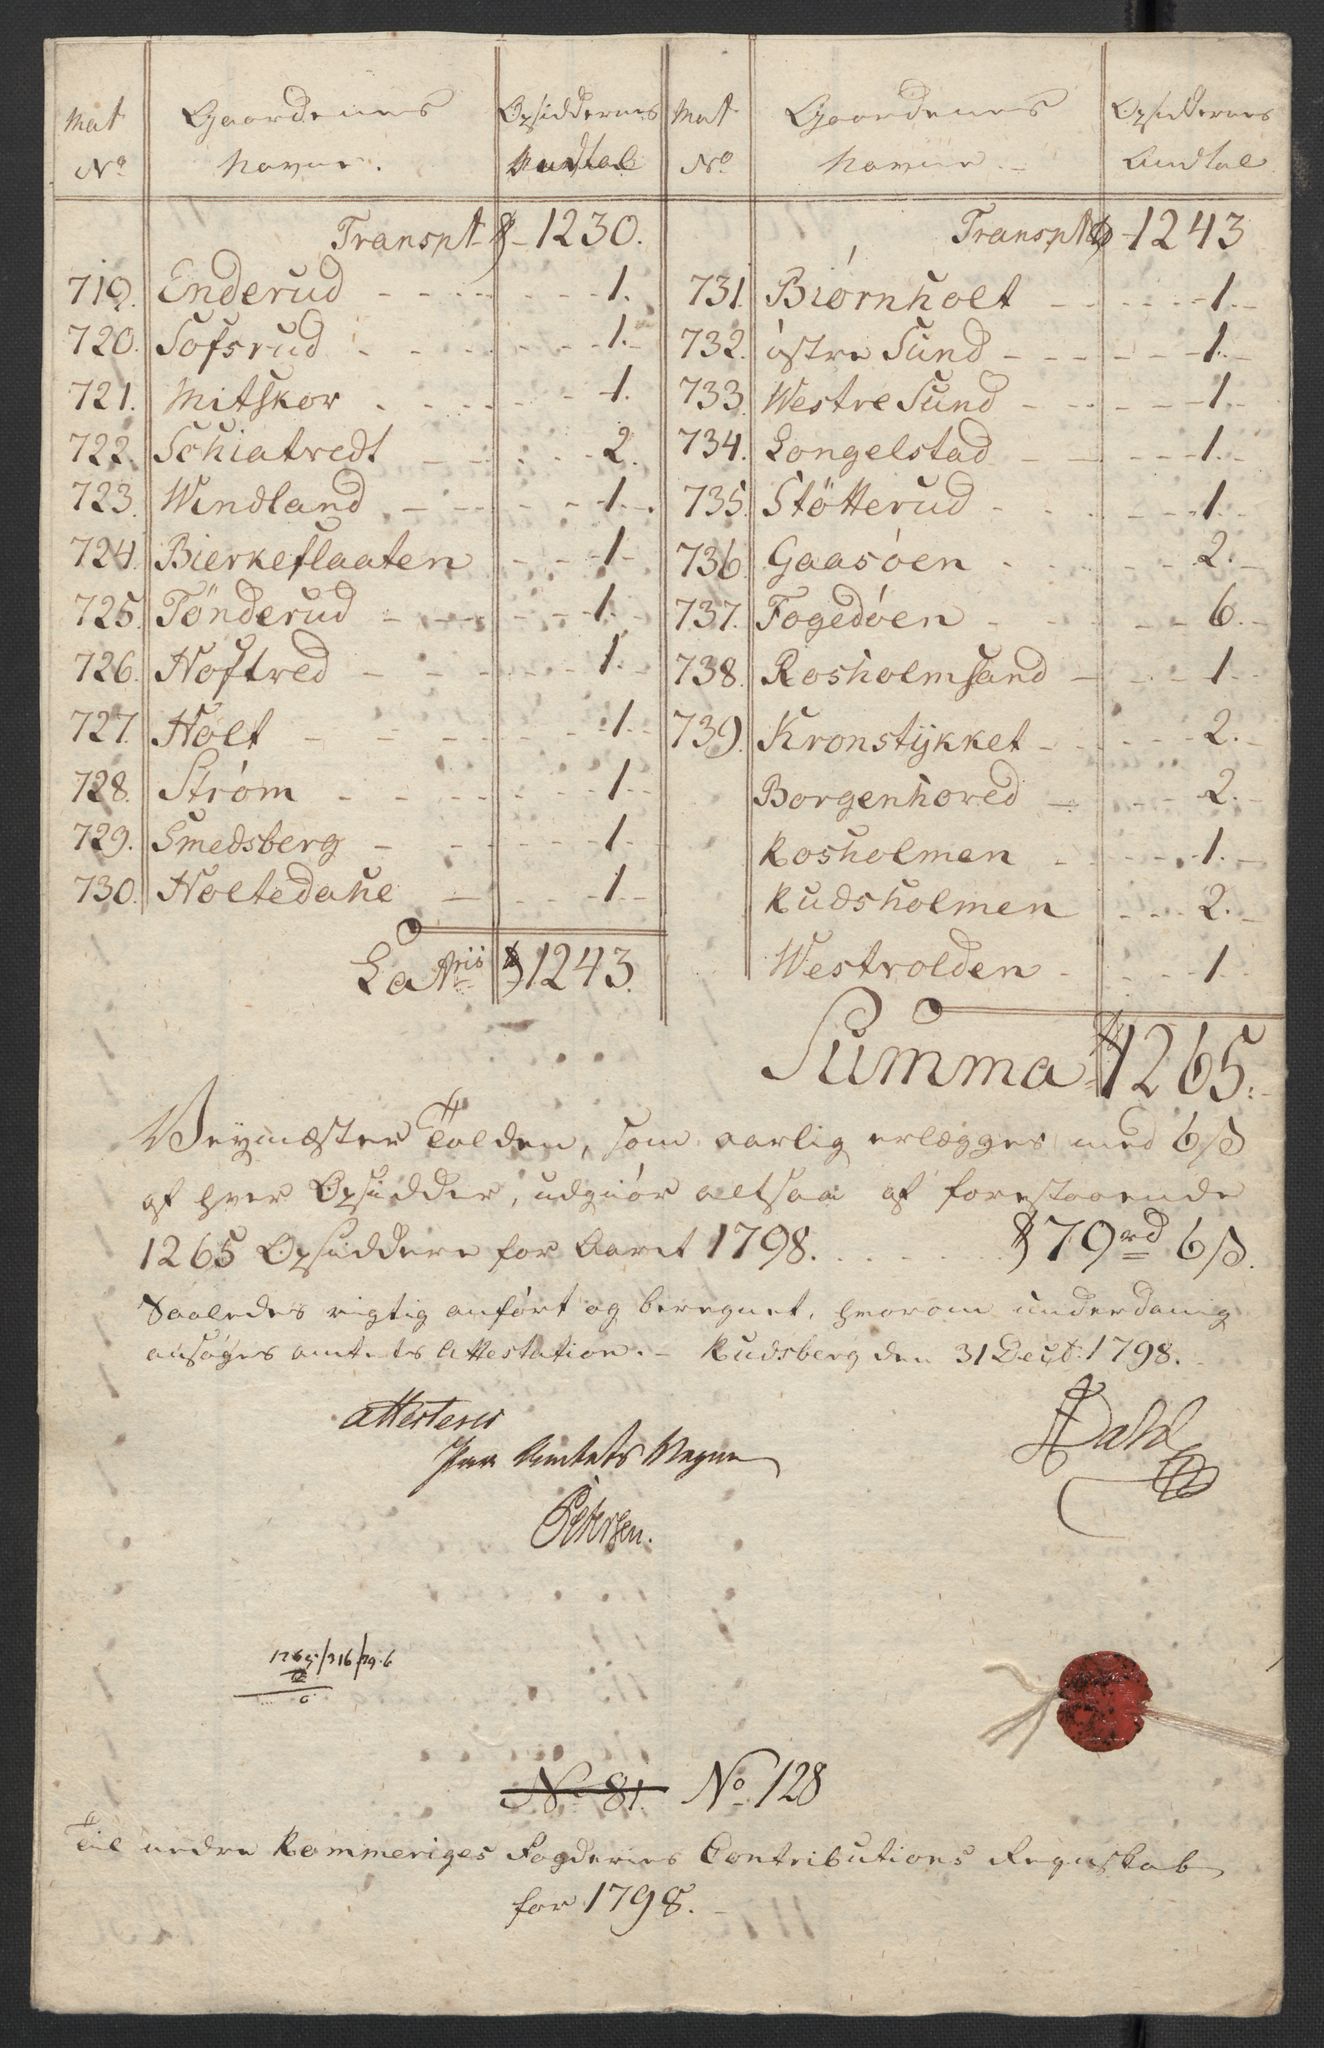 Mat
No
Gaardenes
Navne.
Opsiddernes
Andtal
Transpt 1230.
719. Enderud 1.
720. Sofsrud 1.
721. Mitskor 1.
722. Schiatvedt 2.
723. Windland 1.
724. Bierkeslaaten 1.
725. Tönderud 1.
726. Hoftved 1.
727. Holt 1.
728. Strøm 1.
729. Smedsberg 1.
730. Holtedahl 1.
Lateris 1243.
Mat
No
Gaardenes
Navne.
Opsiddernes
Andtal
Transpt 1243
731. Biørnholt 1.
732. östre Sund 1.
733. Westre Sund 1.
734. Longelstad 1.
735. Stötterud 1.
736. Gaasøen 2.
737. Fogedøen 6.
738. Rosholmsand 1.
739. Kronstÿkket 2.
Borgenhoved 2.
Rosholmen 1.
Rudsholmen 2.
Westvolden 1.
Summa 1265.
Veymester Tolden, som aarlig erlægges med 6 ß
af hver Opsidder, udgiør altsaa af forestaaende
1265 Opsiddere for Aaret 1798. 79 rd 6 ß.
Saaledes rigtig anført og beregnet, hvorom underdanig
ansøges Amtets Attestation. - Rudsberg den 31 Decbr: 1798.
attesteres
Paa Amtets Vegne
Petersen.
1265/316/79.6
No 81. No. 128
Til nedre Rommeriges Fogderies Contributions Regnskab
for 1798.